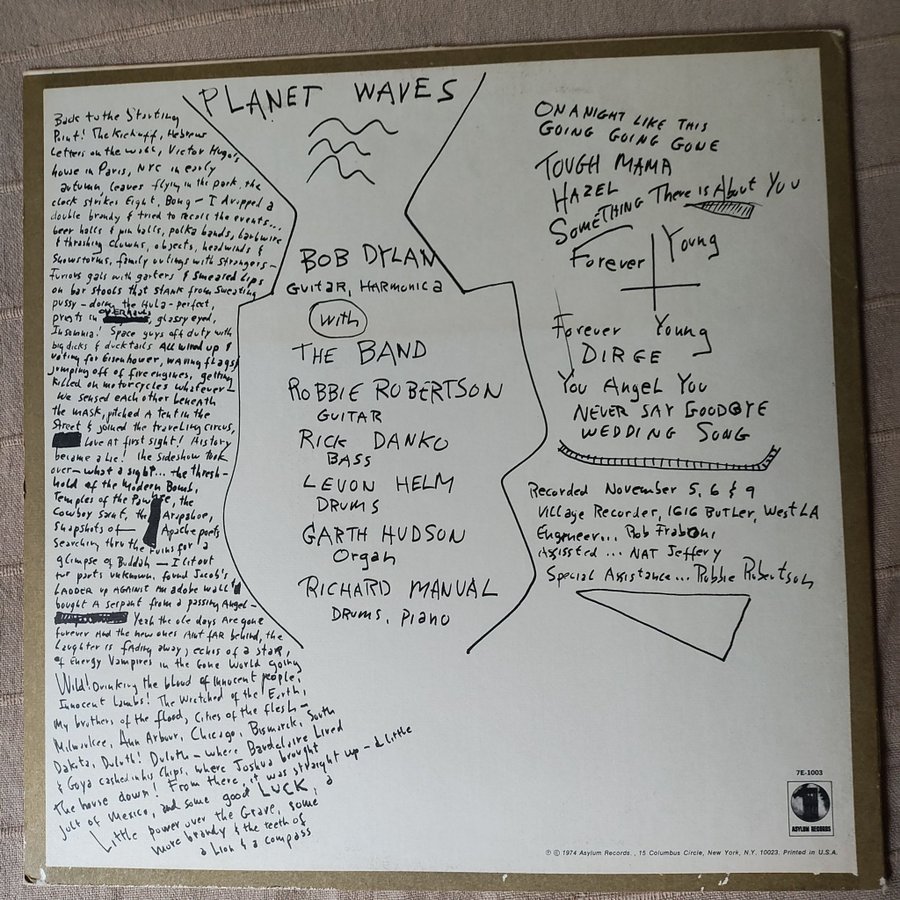 PLANET WAVES
Back to the Starting
Point! The Kickoff, Hebrew
letters on the wall, Victor Hugo's
house in Paris, NYC in early
autumn, leaves flying in the park, the
clock strikes Eight, Bong — I dropped a
double brandy & tried to recall the events...
beer halls & pin balls, polka bands, barbwire
& thrashing clowns, objects, headwinds &
Snowstorms, family outings with strangers —
Furious gals with garters & smeared Lips
on bar stools that stank from sweating
pussy — doing the Hula — perfect,
priests in overhauls, glassy eyed,
Insomnia! Space guys off duty with
big dicks & ducktails All wired up &
voting for Eisenhower, waving flags &
jumping off of fire engines, getting
killed on motorcycles whatever —
We sensed each other beneath
the MASK, pitched A tent in the
Street & joined the traveling circus,
Love At first sight! History
became a Lie! The sideshow took
over — what a sight... the thresh-
hold of the Modern Bomb,
Temples of the Pawnee, the
Cowboy Saint, the Arapahoe,
Snapshots of — Apache poets
searching thru the ruins for a
glimpse of Buddah — I lit out
for parts unknown, found Jacob's
LADDER up AGAINST An adobe wall &
bought A serpant from a passing Angel —
Yeah the ole days Are gone
forever And the new ones Aint fAR behind, the
Laughter is fAding away, echos of a star,
of Energy Vampires in the Gone World going
Wild! Drinking the blood of innocent people,
Innocent Lambs! The Wretched of the Earth,
My brothers of the flood, Cities of the flesh —
Milwaukee, Ann Arbour, Chicago, Bismarck, South
Dakota, Duluth! Duluth — where Baudelaire Lived
& Goya cashed in his Chips, where Joshua brought
the house down! From there, it was straight up — a little
jolt of Mexico, and some good LUCK, a
Little power over the Grave, some
more brandy & the teeth of
a Lion & a compass
BOB DYLAN
GUITAR, HARMONICA
With
THE BAND
ROBBIE ROBERTSON
GUITAR
RICK DANKO
BASS
LEVON HELM
DRUMS
GARTH HUDSON
Organ
RICHARD MANUAL
DRUMS, Piano
ON A NIGHT LIKE THIS
GOING GOING GONE
TOUGH MAMA
HAZEL
SOMETHING There is About You
Forever Young
Forever Young
DIRGE
You Angel You
NEVER SAY GOODBYE
WEDDING SONG
Recorded November 5, 6 & 9
Village Recorder, 1616 BUTLER, West LA
Engineer... Rob Fraboni
Assissted... NAT Jeffery
Special Assistance... Robbie Robertson
7E-1003
ASYLUM RECORDS
℗ © 1974 Asylum Records., 15 Columbus Circle, New York, N.Y. 10023. Printed in U.S.A.